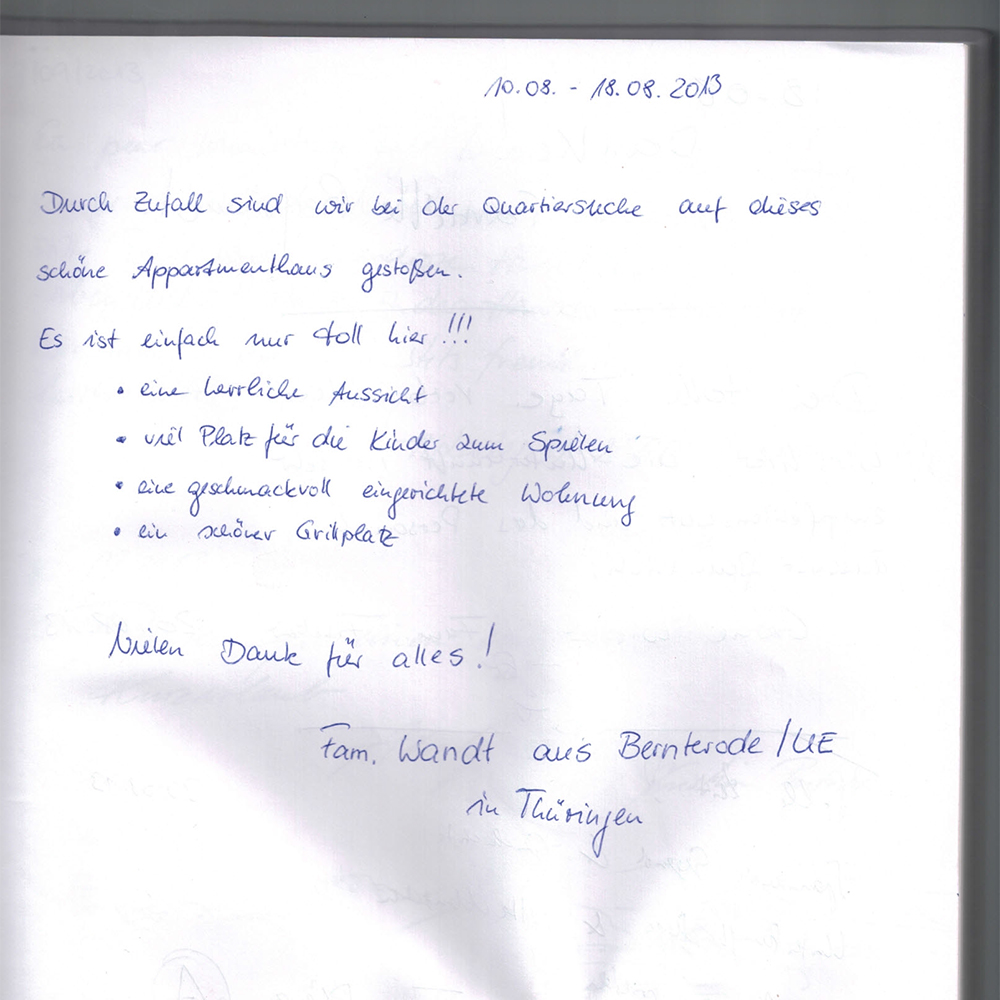 10.08. - 18.08. 2013
Durch Zufall sind wir bei der Quartiersuche auf dieses
schöne Appartmenthaus gestoßen.
Es ist einfach nur toll hier !!!
• eine herrliche Aussicht
• viel Platz für die Kinder zum Spielen
• eine geschmackvoll eingerichtete Wohnung
• ein schöner Grillplatz
Vielen Dank für alles!
Fam. Wandt aus Bernterode /UE
in Thüringen